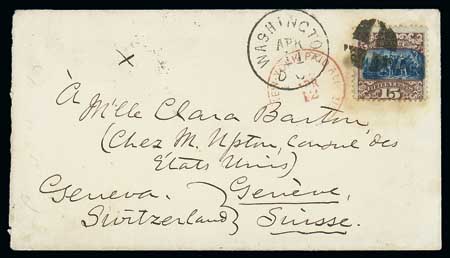 WASHINGTO
APR
D C
NEW PAID ALL
12
15
x
À Mlle Clara Barton,
(Chez M. Upton, Consul des
États Unis)
Geneva. } Genève,
Switzerland } Suisse.